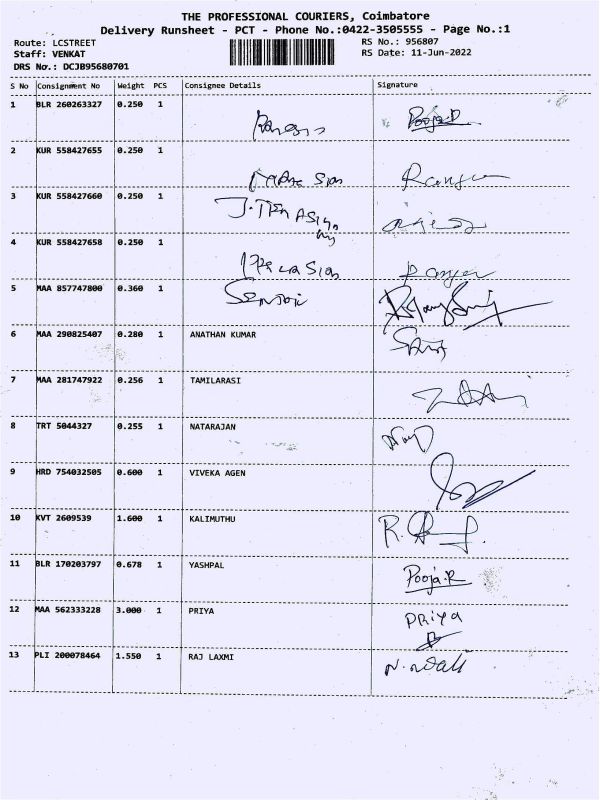 THE PROFESSIONAL COURIERS, Coimbatore
Delivery Runsheet - PCT - Phone No.:0422-3505555 - Page No.:1
Route: LCSTREET
RS No.: 956807
Staff: VENKAT
RS Date: 11-Jun-2022
DRS No.: DCJB95680701
S No Consignment No Weight PCS Consignee Details Signature
1 BLR 260263327 0.250 1 Pooja.R
2 KUR 558427655 0.250 1
3 KUR 558427660 0.250 1
4 KUR 558427658 0.250 1
5 MAA 857747800 0.360 1
6 MAA 290825407 0.280 1 ANATHAN KUMAR
7 MAA 281747922 0.256 1 TAMILARASI
8 TRT 5044327 0.255 1 NATARAJAN
9 HRD 754032505 0.600 1 VIVEKA AGEN
10 KVT 2609539 1.600 1 KALIMUTHU
11 BLR 170203797 0.678 1 YASHPAL Pooja.R
12 MAA 562333228 3.000 1 PRIYA PRiYA
13 PLI 200078464 1.550 1 RAJ LAXMI